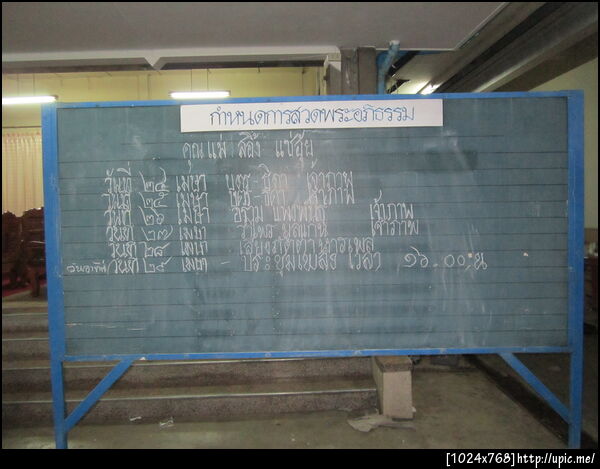 กำหนดการสวดพระอภิธรรม
คุณแม่ ลี้อิ้ง แซ่ฮุ้ย
วันที่ ๒๔ เมษา บุตร-ธิดา เจ้าภาพ
วันที่ ๒๕ เมษา บุตร-ธิดา เจ้าภาพ
วันที่ ๒๖ เมษา เจ้าภาพ
วันที่ ๒๗ เมษา เจ้าภาพ
วันที่ ๒๘ เมษา
วันอาทิตย์ วันที่ ๒๙ เมษา - ประชุมเพลิง เวลา ๑๖.๐๐ น
[1024x768]http://upic.me/